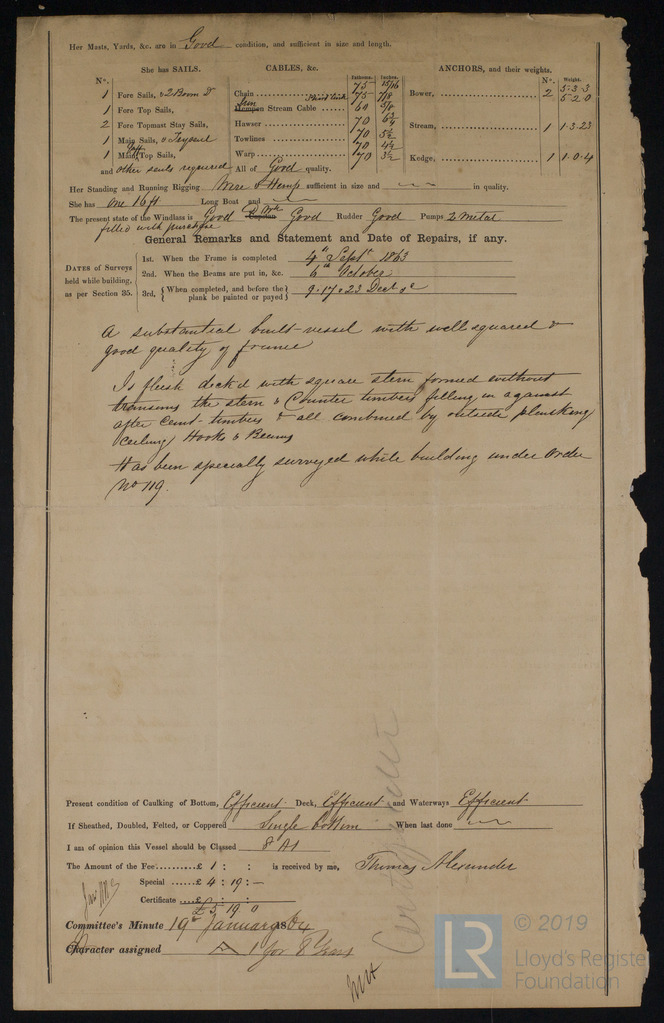 Her Masts, Yards, &c. are in Good condition, and sufficient in size and length.
She has SAILS.
No.
1 Fore Sails, & 2 Boom Do
1 Fore Top Sails,
2 Fore Topmast Stay Sails,
1 Main Sails, & Trysail
1 Main Top Sails,
and other sails required
CABLES, &c.
Fathoms. Inches.
Chain 75 15/16
75 7/8
Hempen Stream Cable 60 5/8
Hawser 70
Towlines 70 5½
70 4½
Warp 70 3½
All of Good quality.
ANCHORS, and their weights.
No. Weight.
Bower, 2 5.3.3
5.2.0
Stream, 1 1.3.23
Kedge, 1 1.0.4
Her Standing and Running Rigging Wire & Hemp sufficient in size and in quality.
She has one 16 ft Long Boat and
The present state of the Windlass is Good Capstan Good Rudder Good Pumps 2 Metal
fitted with purchase
General Remarks and Statement and Date of Repairs, if any.
DATES of Surveys
held while building,
as per Section 35.
1st. When the Frame is completed 4th Septr 1863
2nd. When the Beams are put in, &c. 6th October
3rd, {When completed, and before the plank be painted or payed} 9.17 & 23 Dect
A substantial built vessel with well squared &
good quality of frame
Is flush deck'd with square stern formed without
transoms the stern & Counter timbers filling in against
after Cant-timbers & all combined by outside planking
ceiling Hooks & Beams
Has been specially surveyed while building under Order
No 119.
Present condition of Caulking of Bottom, Efficient Deck, Efficient and Waterways Efficient
If Sheathed, Doubled, Felted, or Coppered Single bottom When last done
I am of opinion this Vessel should be Classed 8 A1
The Amount of the Fee £ 1 : : is received by me, Thomas Alexander
Special £ 4 : 19 : –
Certificate
£ 5 19 0
Committee's Minute 19th January 1864
Character assigned A 1 for 8 Years
LR
© 2019
Lloyd's Register
Foundation